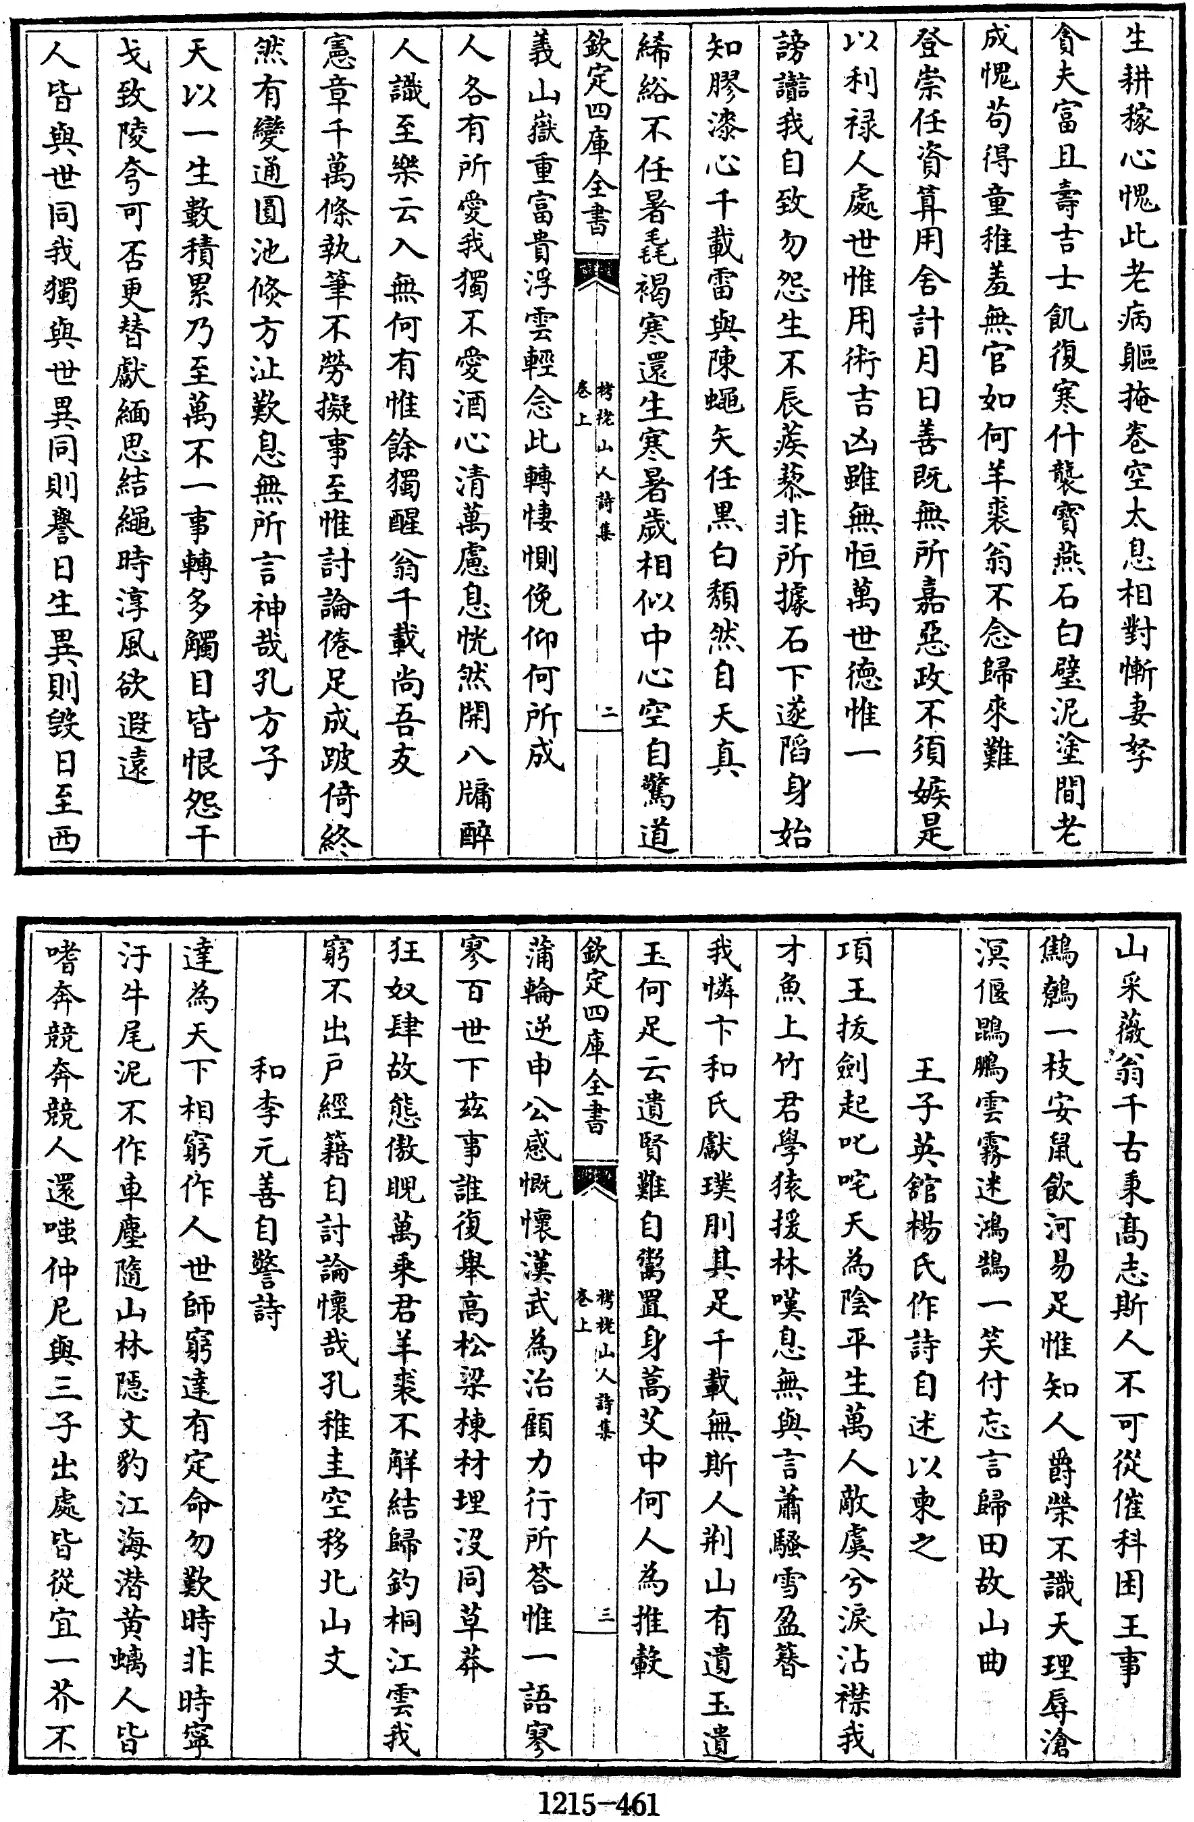 生耕稼心愧此老病軀掩卷空太息相對慚妻孥
貪夫富且壽吉士飢復寒什襲寶燕石白璧泥塗間老
成愧苟得童稚羞無官如何羊裘翁不念歸來難
登崇任資算用舍計月日善既無所嘉惡政不須嫉是
以利禄人處世惟用術吉凶雖無恒萬世德惟一
謗讟我自致勿怨生不辰蒺藜非所據石下遂陷身始
知膠漆心千載雷與陳蠅矢任黒白頽然自天真
絺綌不任暑毳褐寒還生寒暑歲相似中心空自驚道
欽定四庫全書
栲栳山人詩集
卷上
二
義山嶽重富貴浮雲輕念此轉悽惻俛仰何所成
人各有所愛我獨不愛酒心清萬慮息恍然開八牖醉
人識至樂云入無何有惟餘獨醒翁千載尚吾友
憲章千萬條執筆不勞擬事至惟討論倦足成跛倚終
然有變通圓池倐方沚歎息無所言神哉孔方子
天以一生數積累乃至萬不一事轉多觸目皆恨怨干
戈致陵夸可否更替獻緬思結繩時淳風欲遐遠
人皆與世同我獨與世異同則譽日生異則毁日至西
山采薇翁千古秉髙志斯人不可從催科困王事
鷦鷯一枝安鼠飲河易足惟知人爵榮不識天理辱滄
溟偃鵾鵬雲霧迷鴻鵠一笑付忘言歸田故山曲
王子英舘楊氏作詩自述以柬之
項王拔劍起叱咤天為陰平生萬人敵虞兮淚沾襟我
才魚上竹君學猿援林嘆息無與言蕭騷雪盈簪
我憐卞和氏獻璞刖其足千載無斯人荆山有遺玉遺
玉何足云遺賢難自鬻置身蒿艾中何人為推轂
欽定四庫全書
栲栳山人詩集
卷上
三
蒲輪逆申公感慨懷漢武為治顧力行所答惟一語寥
寥百世下兹事誰復舉高松梁棟材埋没同草莽
狂奴肆故態傲睨萬乗君羊裘不解結歸釣桐江雲我
窮不出户經籍自討論懷哉孔稚圭空移北山文
和李元善自警詩
達為天下相窮作人世師窮達有定命勿歎時非時寧
汙牛尾泥不作車塵隨山林隱文豹江海潛黄螭人皆
嗜奔競奔競人還嗤仲尼與三子出處皆從宜一芥不
1215-461